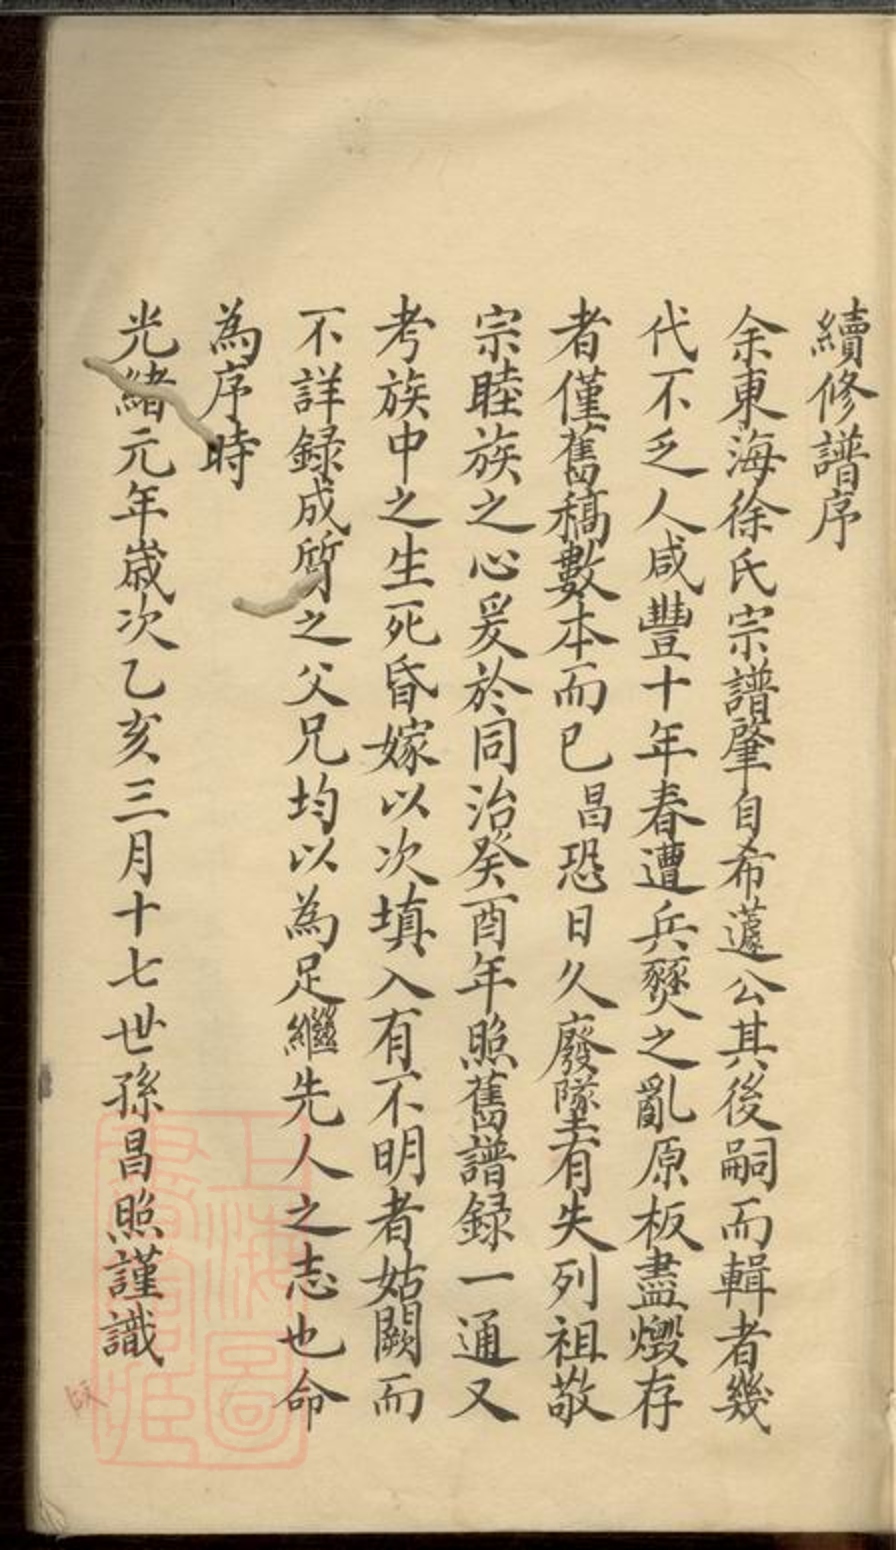 續修譜序
余東海徐氏宗譜肇自希蘧公其後嗣而輯者幾
代不乏人咸豐十年春遭兵燹之亂原板盡燬存
者僅舊稿數本而已昌恐日久廢墜有失列祖敬
宗睦族之心爰於同治癸酉年照舊譜録一通又
考族中之生死昏嫁以次填入有不明者姑闕而
不詳録成質之父兄均以為足繼先人之志也命
為序時
光緒元年歲次乙亥三月十七世孫昌照謹識
上海圖書館藏